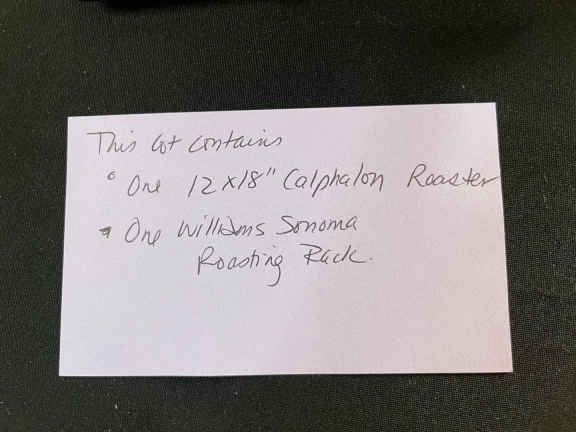 This lot contains
° One 12 x 18" Calphalon Roaster
• One Williams Sonoma
Roasting Rack.